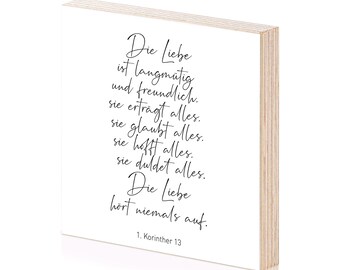 Die Liebe
ist langmütig
und freundlich.
sie erträgt alles.
sie glaubt alles.
sie hofft alles.
sie duldet alles.
Die Liebe
hört niemals auf.
1. Korinther 13